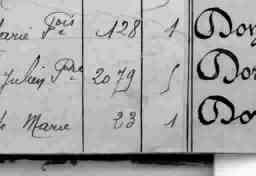 arie Fois 128 1 Dor
Julien Pre 2079 5 Dor
Marie 23 1 Do